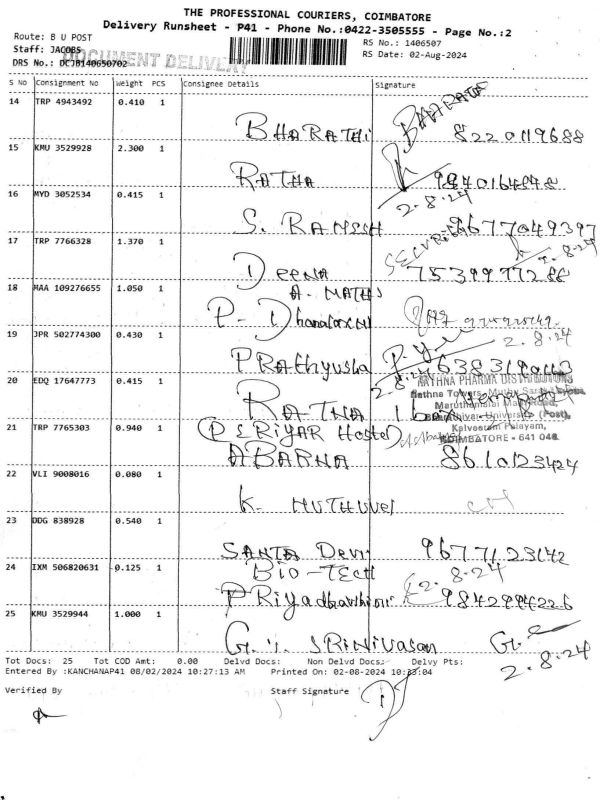 THE PROFESSIONAL COURIERS, COIMBATORE
Delivery Runsheet - P41 - Phone No.:0422-3505555 - Page No.:2
Route: B U POST
RS No.: 1406507
Staff: JACOBS
RS Date: 02-Aug-2024
DOCUMENT DELIVERY
DRS No.: DCJB140650702
S No Consignment No Weight PCS Consignee Details Signature
14 TRP 4943492 0.410 1
BHARATHI BHARATHI 8220119688
15 KMU 3529928 2.300 1
RATHA
2.8.24
16 MYD 3052534 0.415 1
S. RAMESH 9677049397
17 TRP 7766328 1.370 1
SECURITY 2.8.24
Deena 7539977288
18 MAA 109276655 1.050 1
A. MATHS
P. Dhanalaxmi
2.8.24
19 JPR 502774300 0.430 1
PRathyusha
2.8.24
20 EDQ 17647773 0.415 1
RATHNA PHARMA DISTRIBUTIONS
Rathna Towers,
RATNA 1 box
University (Post),
21 TRP 7765303 0.940 1
(PERIYAR Hostel)
Kalveeram Palayam,
COIMBATORE - 641 046.
ABARNA 8610123424
22 VLI 9008016 0.080 1
K. MUTHUVEL
23 DDG 838928 0.540 1
SANTA Devi 9677123142
24 IXM 506820631 0.125 1
BIO-TECH 2.8.24
PRiyadharshini
25 KMU 3529944 1.000 1
SRINIVASAN
2.8.24
Tot Docs: 25 Tot COD Amt: 0.00 Delvd Docs: Non Delvd Docs: Delvy Pts:
Entered By :KANCHANAP41 08/02/2024 10:27:13 AM Printed On: 02-08-2024 10:33:04
Verified By Staff Signature